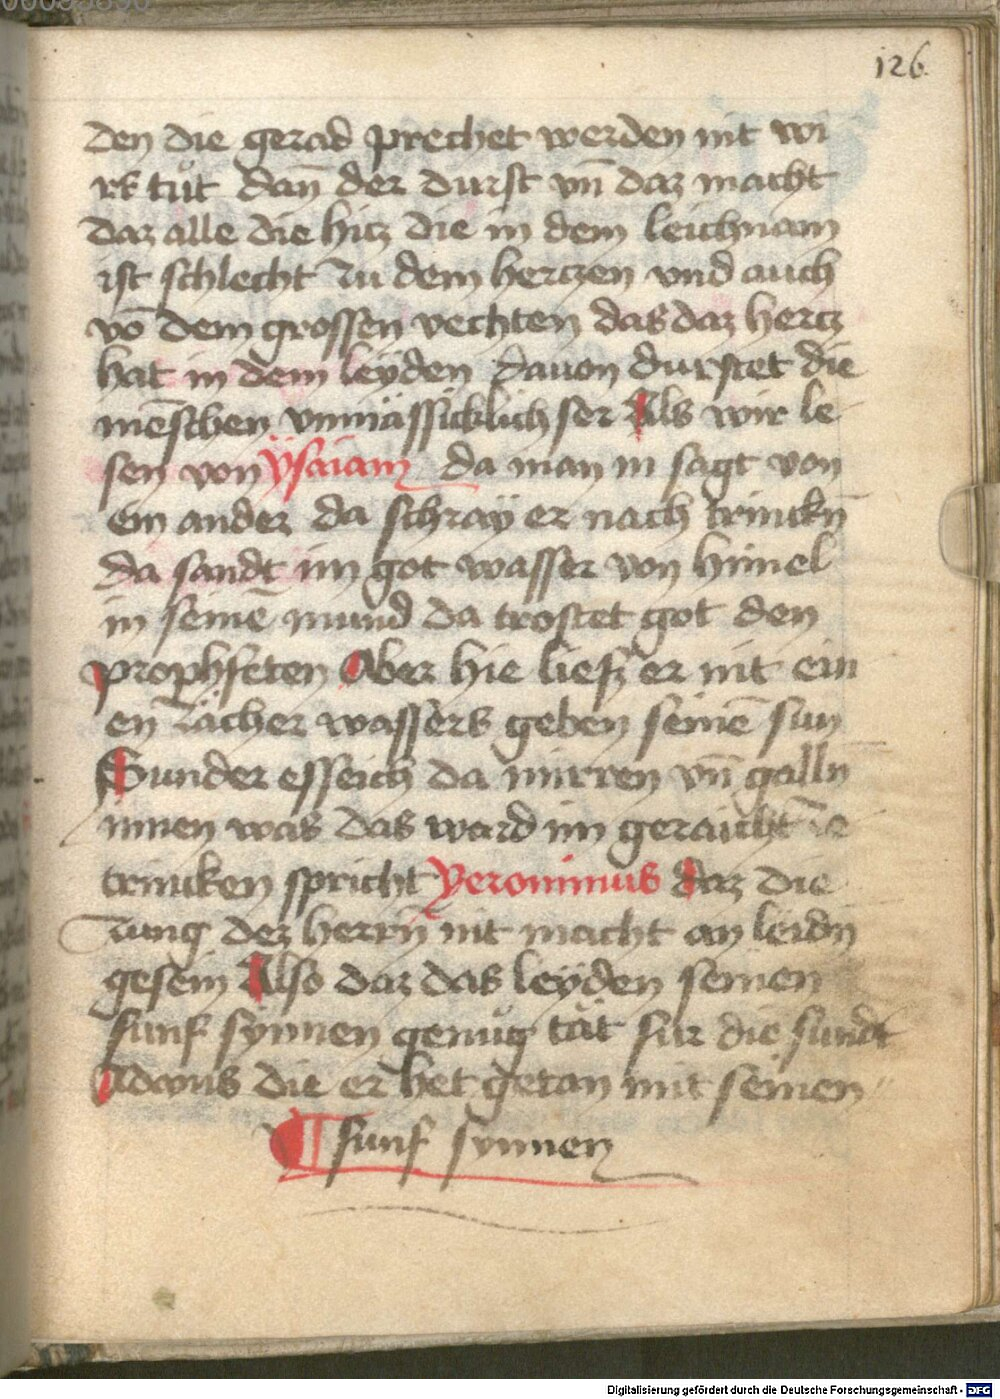 126
den die gerad prechet werden nit wi
rk tůt dañ der durst vñ daz macht
daz alle die hitz die in dem leichnam
ist schlecht zu dem hertzen vnd auch
võ dem grossen vechten das daz hertz
hat in dem leyden dauon durstet die
mēschen vnmässicklich ser Als wir le
sen von ÿsaiam da man in sagt von
ein ander da schraÿ er nach trinckñ
da sandt im got wasser von himel
in seinē mund da trostet got den
prophfeten Aber hie liesz er nit ein
en zächer wassers geben seinē sun
Sunder esseich da mirren vñ gallñ
innen was das ward im geraicht ze
trincken spricht Yeronimus daz die
zung dez herrñ nit macht an leidñ
gesein Also daz das leÿden seinen
funf sÿnnen genůg tät fur die sundt
Adams die er het getan mit seinen
funf synnen
Digitalisierung gefördert durch die Deutsche Forschungsgemeinschaft - DFG